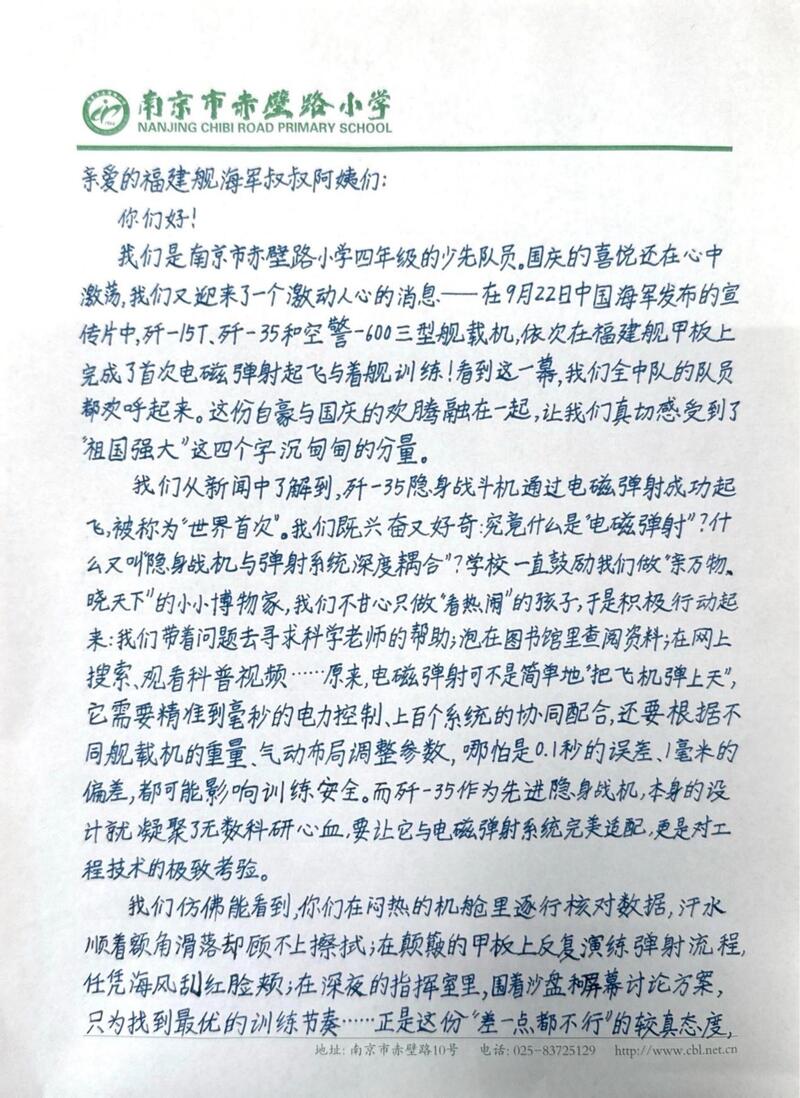 南京市赤壁路小学
NANJING CHIBI ROAD PRIMARY SCHOOL
亲爱的福建舰海军叔叔阿姨们：
你们好！
我们是南京市赤壁路小学四年级的少先队员。国庆的喜悦还在心中
激荡，我们又迎来了一个激动人心的消息——在9月22日中国海军发布的宣
传片中，歼-15T、歼-35和空警-600三型舰载机，依次在福建舰甲板上
完成了首次电磁弹射起飞与着舰训练！看到这一幕，我们全中队的队员
都欢呼起来。这份自豪与国庆的欢腾融在一起，让我们真切感受到了
“祖国强大”这四个字沉甸甸的分量。
我们从新闻中了解到，歼-35隐身战斗机通过电磁弹射成功起
飞，被称为“世界首次”。我们既兴奋又好奇：究竟什么是“电磁弹射”？什
么又叫“隐身战机与弹射系统深度耦合”？学校一直鼓励我们做“亲万物、
晓天下”的小小博物家，我们不甘心只做“看热闹”的孩子，于是积极行动起
来：我们带着问题去寻求科学老师的帮助；泡在图书馆里查阅资料；在网上
搜索、观看科普视频……原来，电磁弹射可不是简单地“把飞机弹上天”，
它需要精准到毫秒的电力控制、上百个系统的协同配合，还要根据不
同舰载机的重量、气动布局调整参数，哪怕是0.1秒的误差、1毫米的
偏差，都可能影响训练安全。而歼-35作为先进隐身战机，本身的设
计就凝聚了无数科研心血，要让它与电磁弹射系统完美适配，更是对工
程技术的极致考验。
我们仿佛能看到，你们在闷热的机舱里逐行核对数据，汗水
顺着额角滑落却顾不上擦拭；在颠簸的甲板上反复演练弹射流程，
任凭海风刮红脸颊；在深夜的指挥室里，围着沙盘和屏幕讨论方案，
只为找到最优的训练节奏……正是这份“差一点都不行”的较真态度，
地址：南京市赤壁路10号 电话：025-83725129 http://www.cbl.net.cn